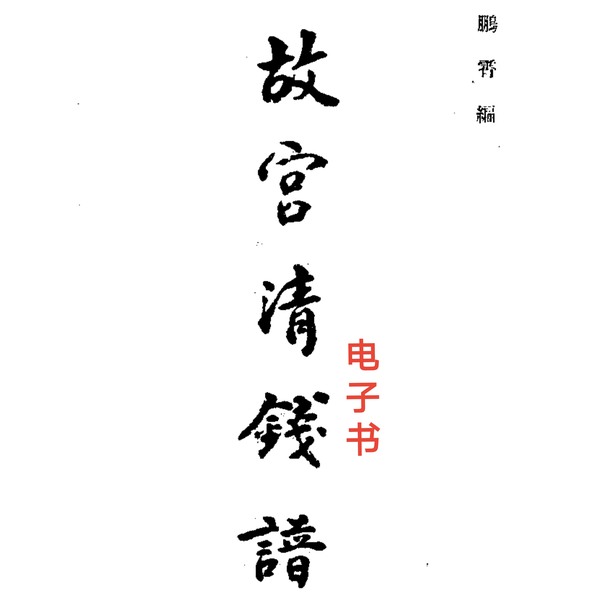 鵬霄編
故宮清錢譜
电子书